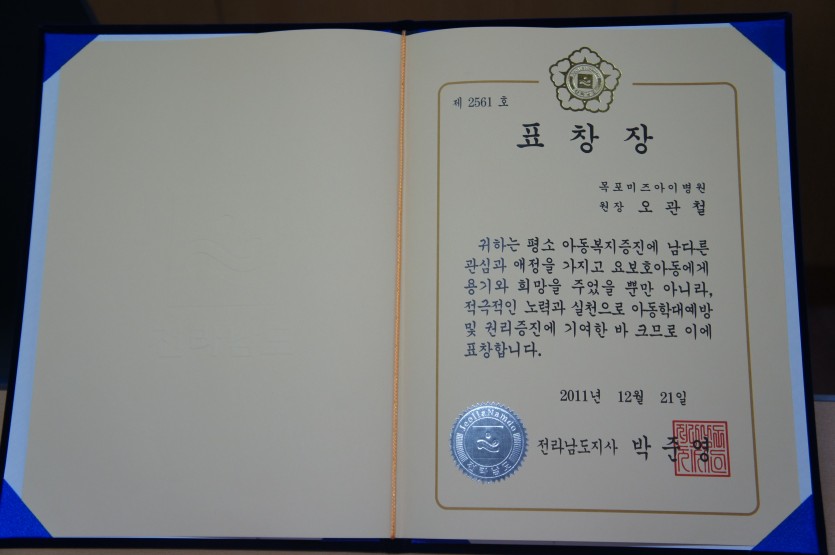 제 2561 호
표 창 장
목포미즈아이병원
원장 오 관 철
귀하는 평소 아동복지증진에 남다른
관심과 애정을 가지고 요보호아동에게
용기와 희망을 주었을 뿐만 아니라,
적극적인 노력과 실천으로 아동학대예방
및 권리증진에 기여한 바 크므로 이에
표창합니다.
2011년 12월 21일
JeollaNamdo
전라남도
전라남도지사 박 준 영